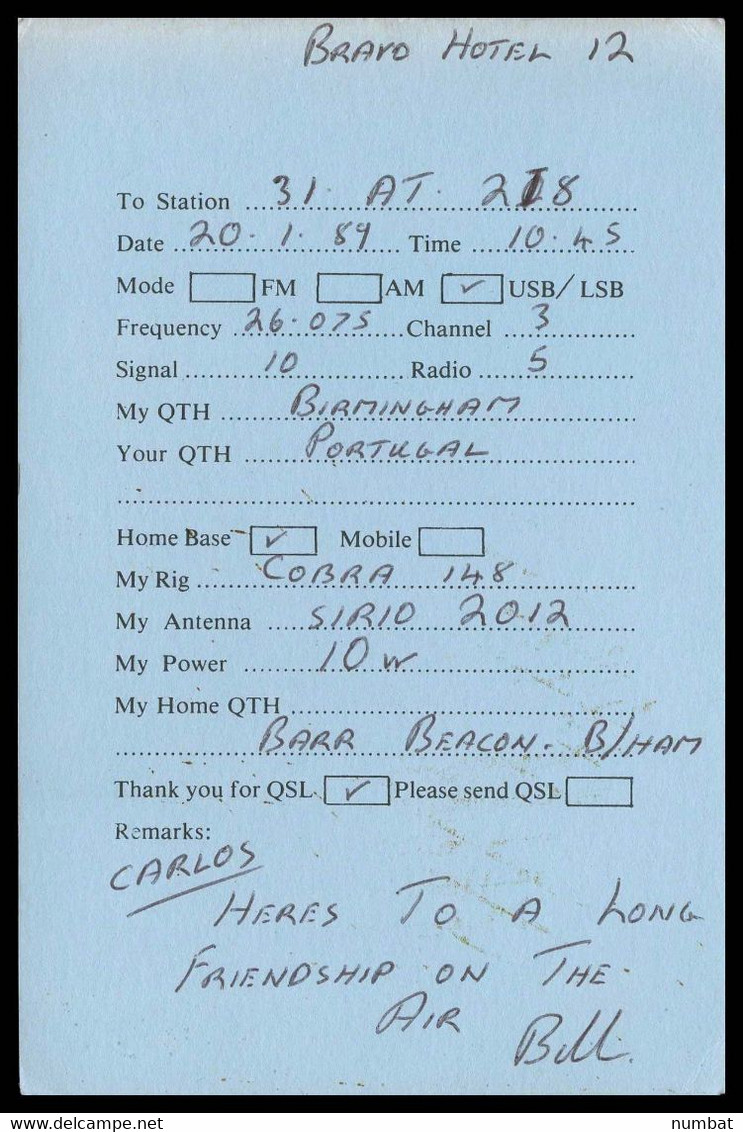 BRAVO HOTEL 12
To Station 31. AT. 218
Date 20.1.89 Time 10.45
Mode FM AM ✓ USB/ LSB
Frequency 26.075 Channel 3
Signal 10 Radio 5
My QTH BIRMINGHAM
Your QTH PORTUGAL
Home Base ✓ Mobile
My Rig COBRA 148
My Antenna SIRIO 2012
My Power 10 W
My Home QTH
BARR BEACON. B/HAM
Thank you for QSL ✓ Please send QSL
Remarks:
CARLOS
HERES TO A LONG
FRIENDSHIP ON THE
AIR
Bill.
www.delcampe.net
numbat